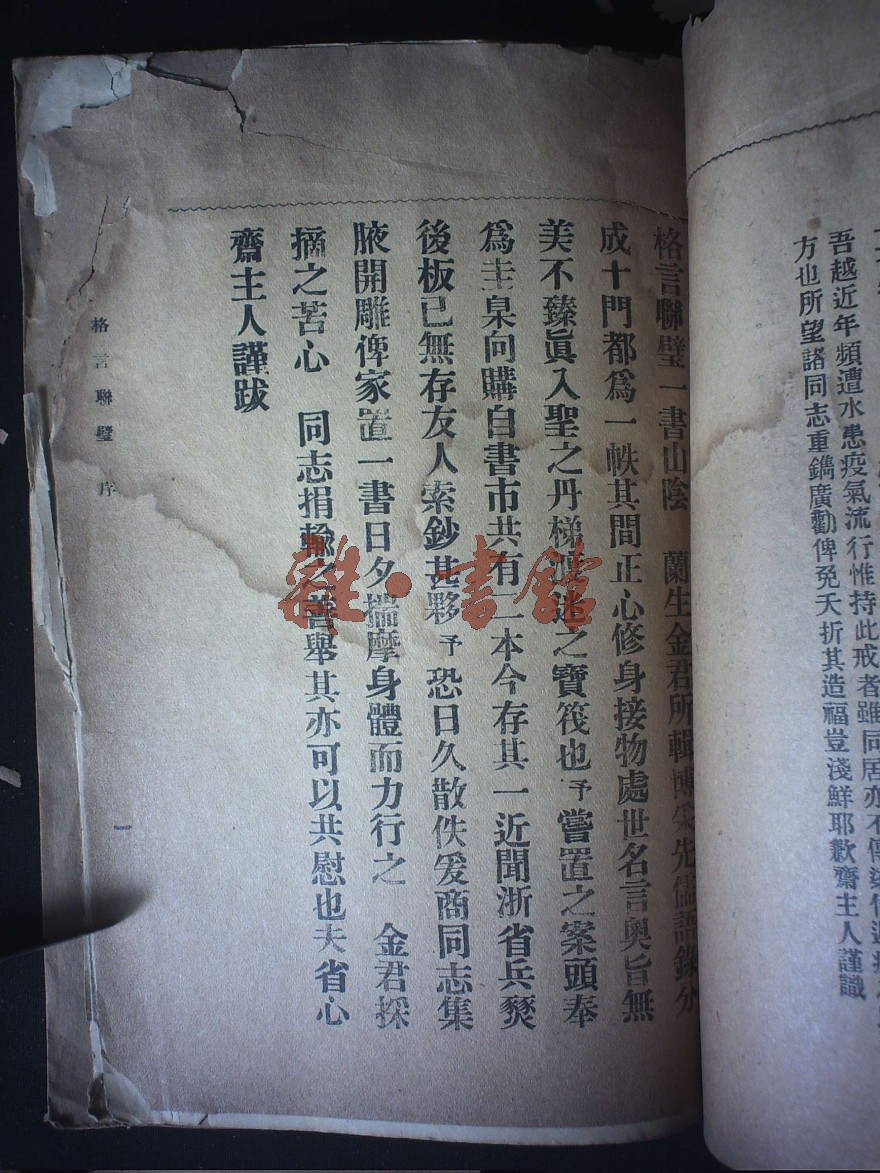 吾越近年頻遭水患疫氣流行惟持此戒者雖同居亦不傳染
方也所望諸同志重鐫廣勸俾免夭折其造福豈淺鮮耶歉齋主人謹識
格言聯璧一書山陰 蘭生金君所輯博采先儒語錄分
成十門都爲一帙其間正心修身接物處世名言奧旨無
美不臻眞入聖之丹梯渡迷之寶筏也予嘗置之案頭奉
爲圭臬向購自書市共有二本今存其一近聞浙省兵燹
後板已無存友人索鈔甚夥予恐日久散佚爰商同志集
腋開雕俾家置一書日夕揣摩身體而力行之 金君採
摘之苦心 同志捐輸之善舉其亦可以共慰也夫省心
齋主人謹跋
格言聯璧 序
一
雜·書館